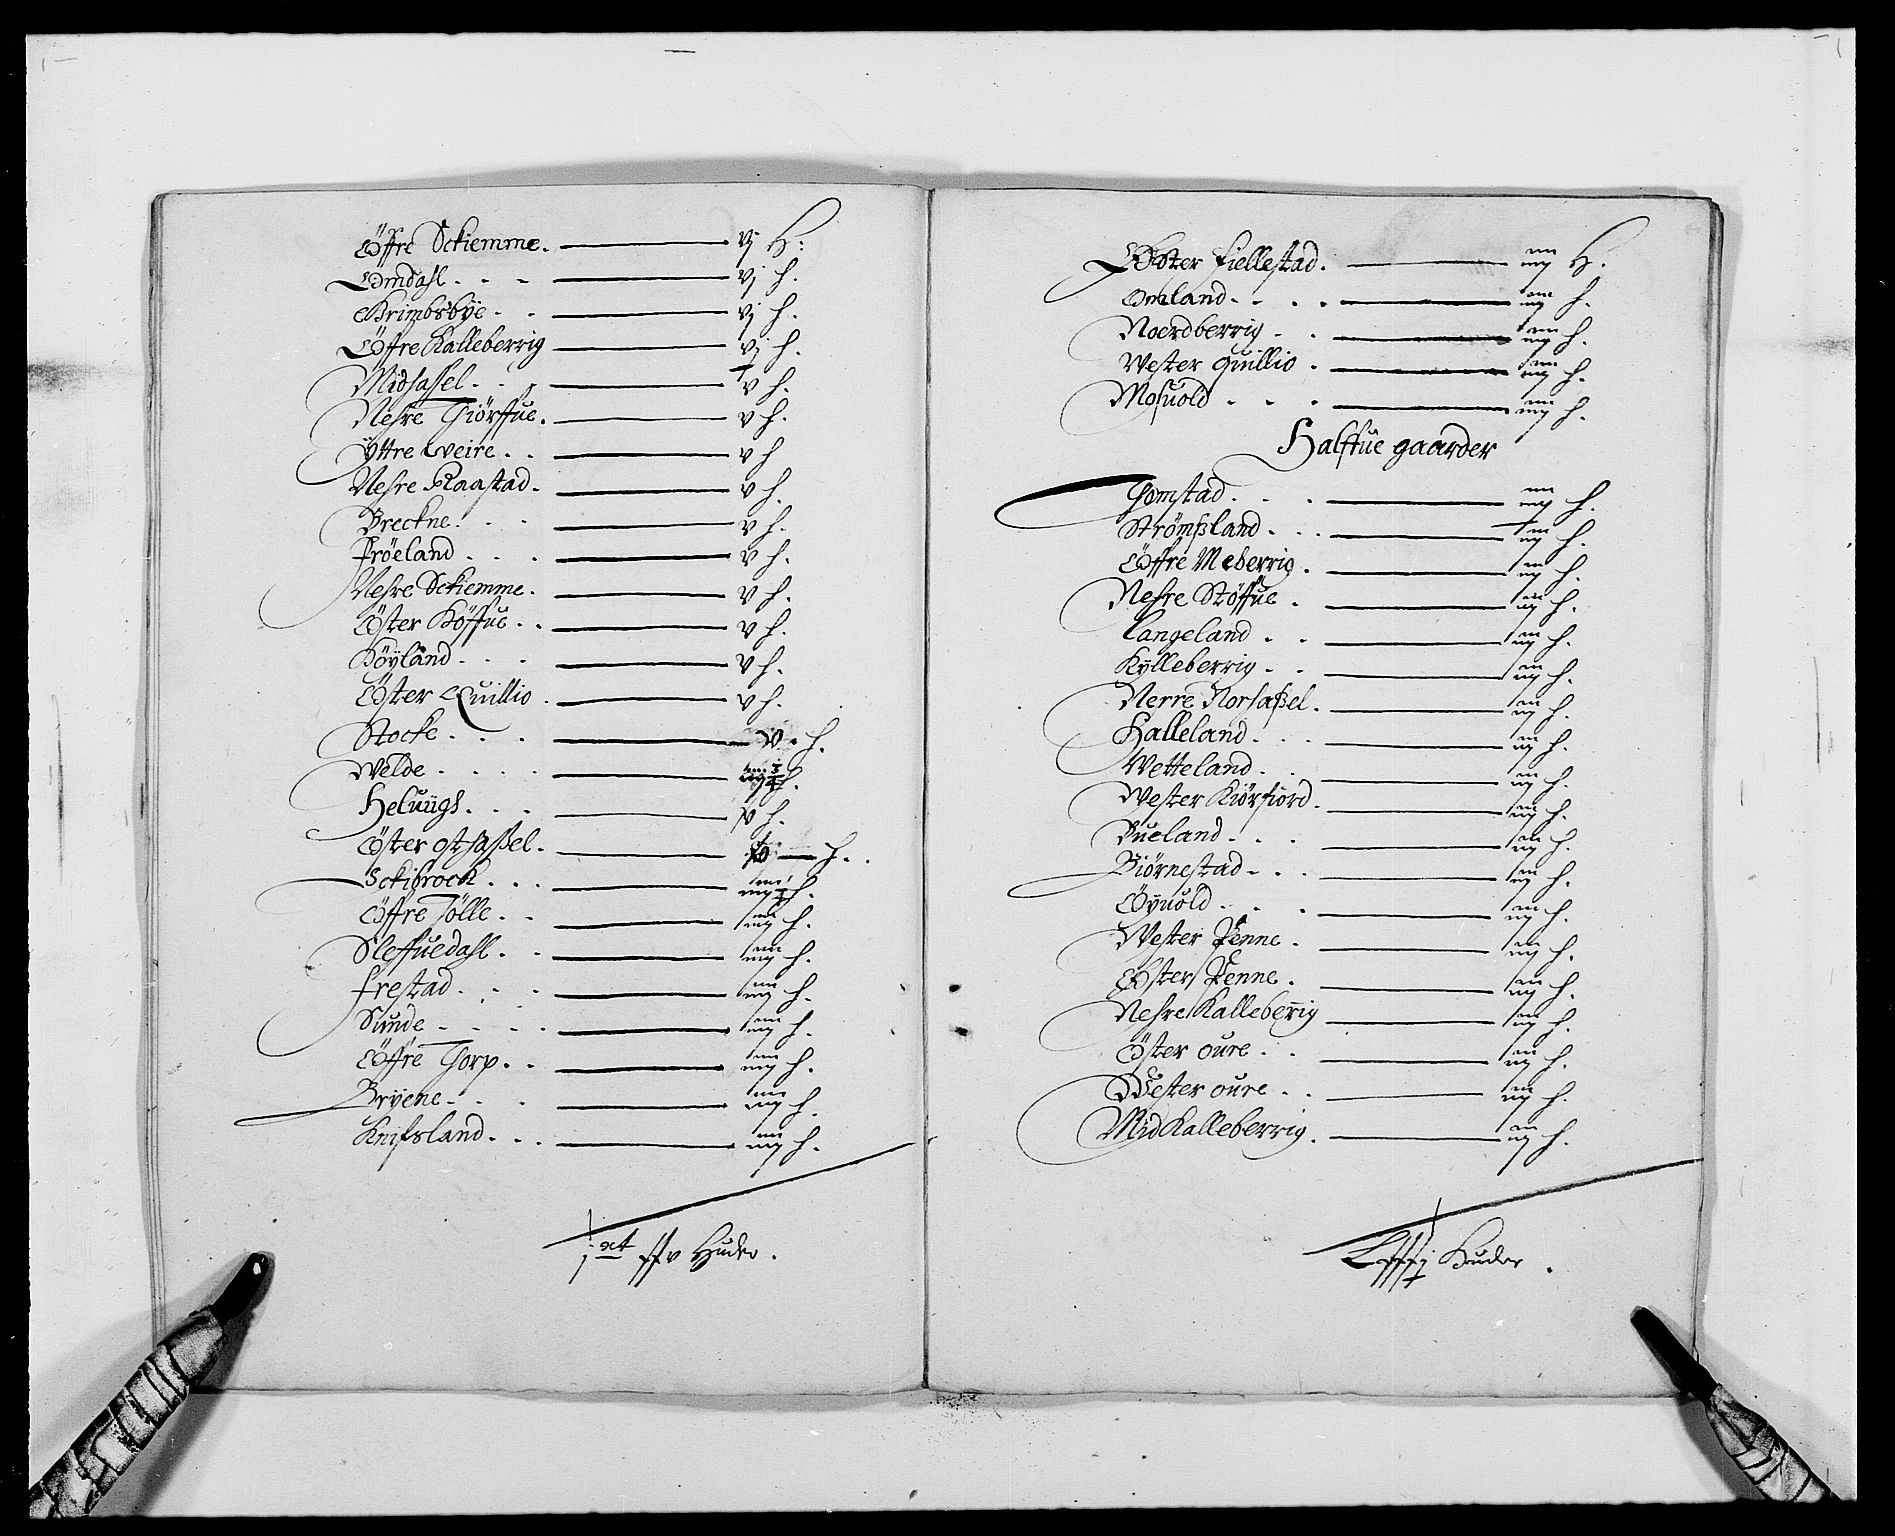 Öffre Sckiemme. vj H:
Omdahl. vj h.
Brimbsbye vj h.
Öffre Kalleberrig vj h.
Midhassel. v h.
Nehre Thiörffue. v h.
Yttre Weire v h
Nehre Raastad. v h.
Breckne. v h.
Fröeland v h.
Nehre Sckiemme. v h.
Öster Köffue v h.
Höyland v h.
Öster Quillio v h.
Stocke v h.
Welde h.
Heluiigh. v h.
Öster Othassel. h.
Sckibrock h.
Öffre Tölle iiij h.
Sleffuedahl iiij h.
Frestad iiij h.
Sunde iiij h.
Öffre Thorp iiij h.
Bryene iiij h.
Knifsland iiij h.
v Huder.
Öster Fiellestad. iiij H.
Omland iiij h.
Noerdberrig iiij h.
Wester Quillio iiij h.
Mosuold iiij h.
Halffue gaarder
Thomstad iiij h.
Strömsland iiij h.
Öffre Meberrig. iiij h.
Nehre Stöffue iiij h.
Langeland iiij h.
Kylleberrig iiij h.
Nerre Norhassel. iiij h.
Halleland iiij h.
Wetteland iiij h.
Wester Kiörfiord. iiij h.
Bueland iiij h.
Biörnestad iiij h.
Öyuold iiij h.
Wester Penne iiij h.
Öster Penne. iiij h.
Nehre Kalleberrig iiij h.
Öster oure iiij h.
Wester oure iiij h.
Mid Kalleberrig. iiij h.
Huder.